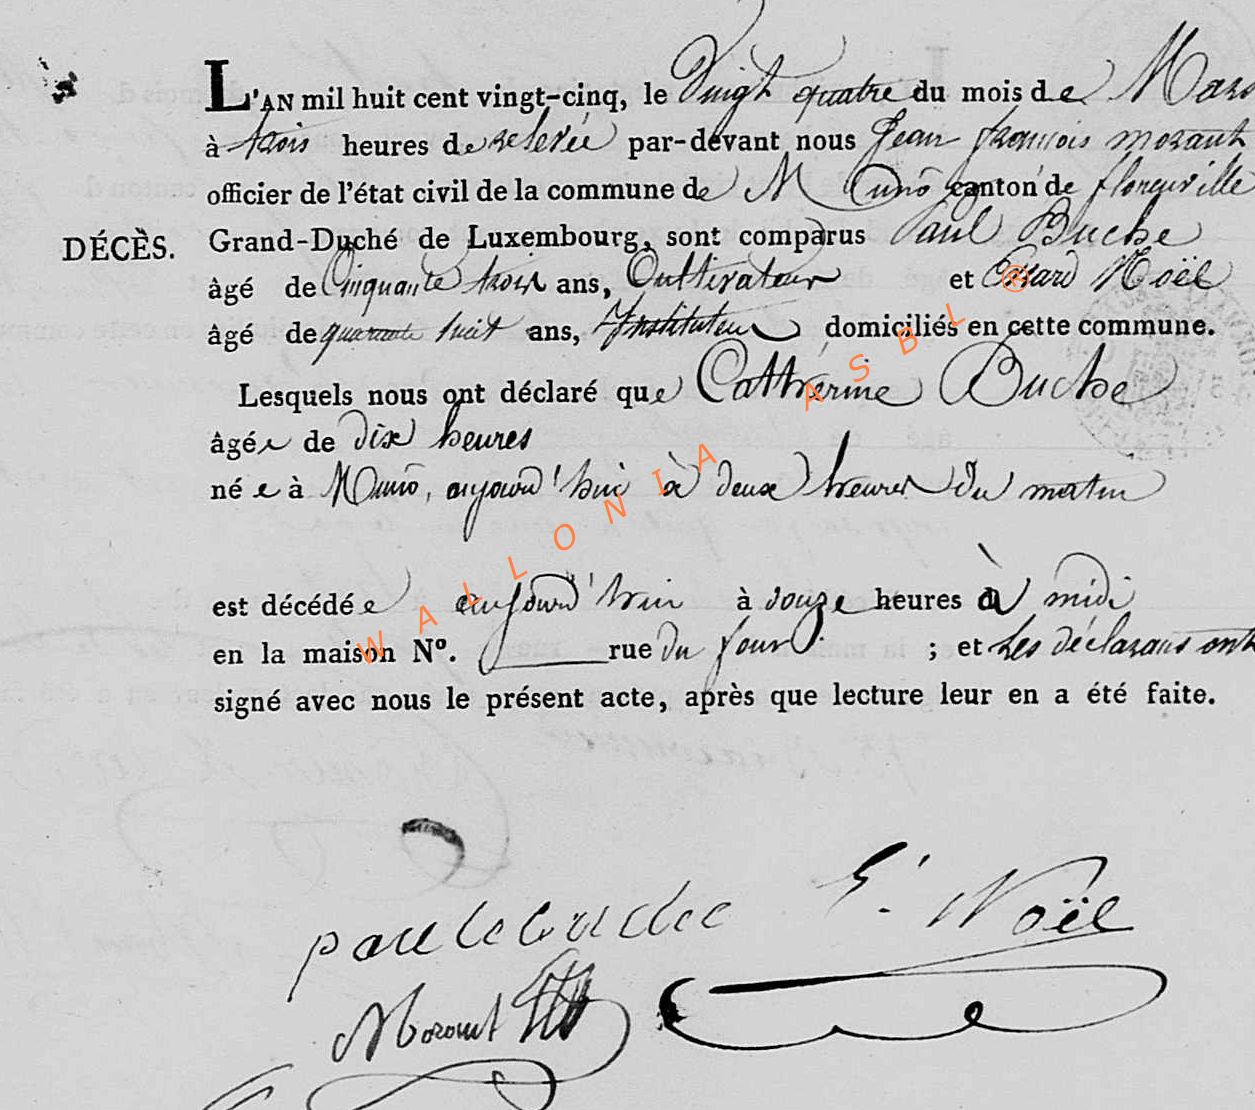 L'AN mil huit cent vingt-cinq, le Vingt quatre du mois de Mars
à trois heures de relevée par-devant nous Jean françois morant
officier de l'état civil de la commune de Munō canton de florenville
DÉCÈS. Grand-Duché de Luxembourg, sont comparus Paul Buche
âgé de Cinquante trois ans, Cultivateur et Noël
âgé de quarante huit ans, Instituteur domiciliés en cette commune.
Lesquels nous ont déclaré que Catthérine Buche
âgée de dix heures
née à Munō, aujourd'hui à deux heures du matin
est décédée aujourd'hui à douze heures à midi
en la maison N°. rue du four ; et les déclarans ont
signé avec nous le présent acte, après que lecture leur en a été faite.
WALLONIA ASBL ®
Noël
Morant